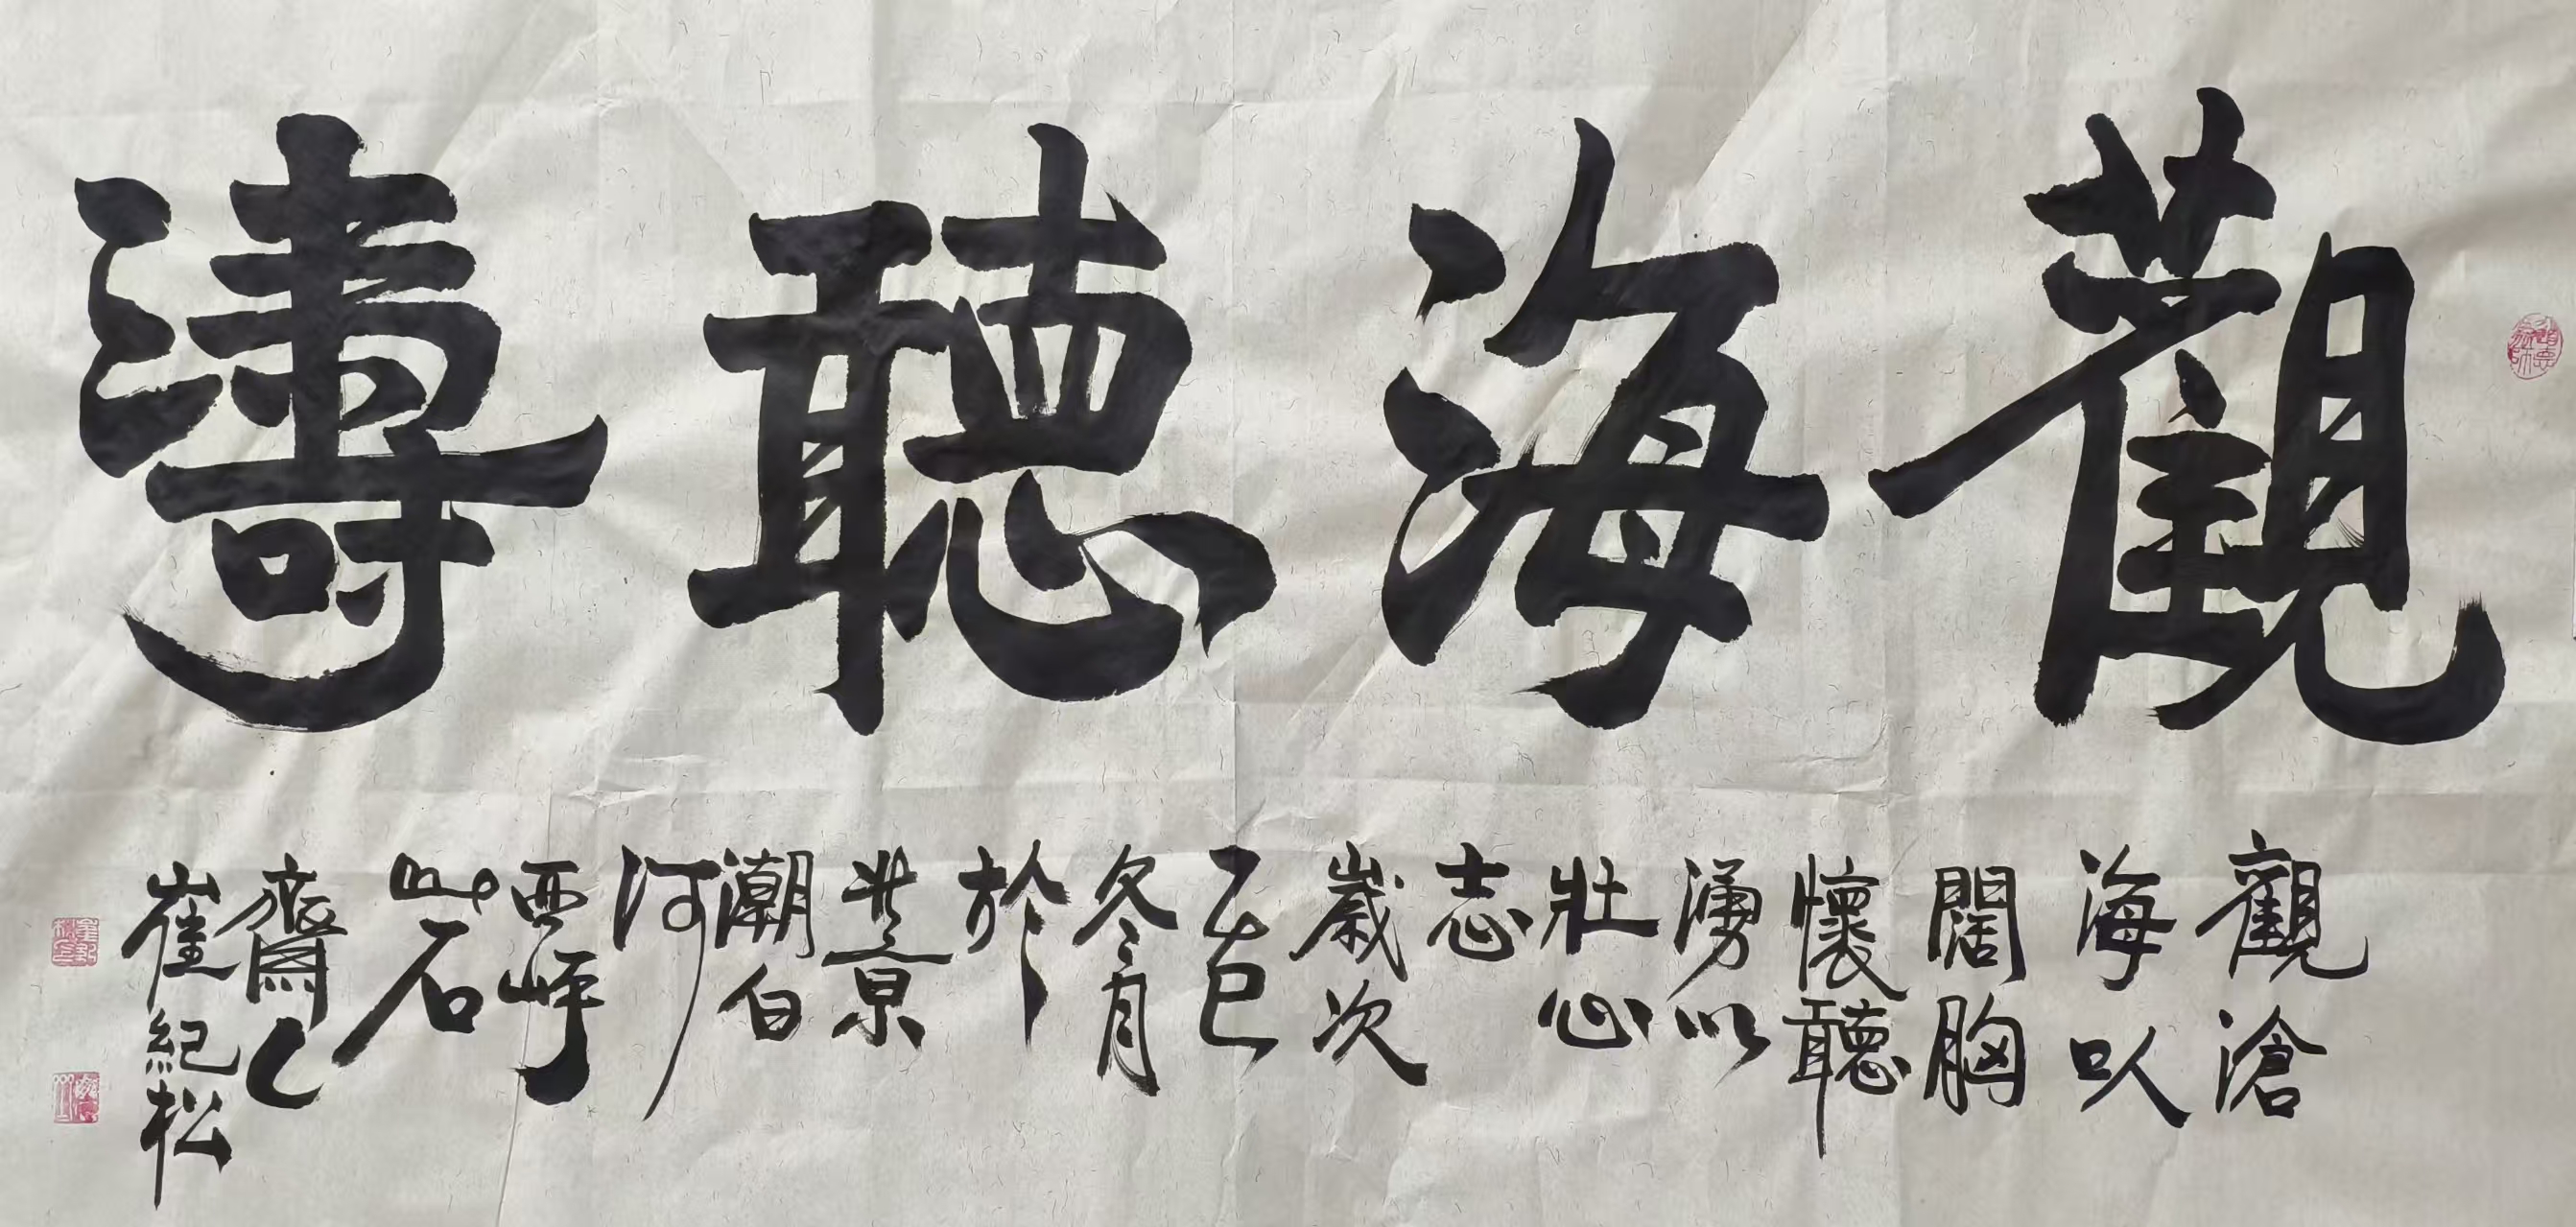 觀海聽濤
觀滄
海以
闊胸
懷聽
湧以
壯心
志
歲次
乙巳
冬月
於
北京
潮白
河
西岸
山石
齋人
崔紀松